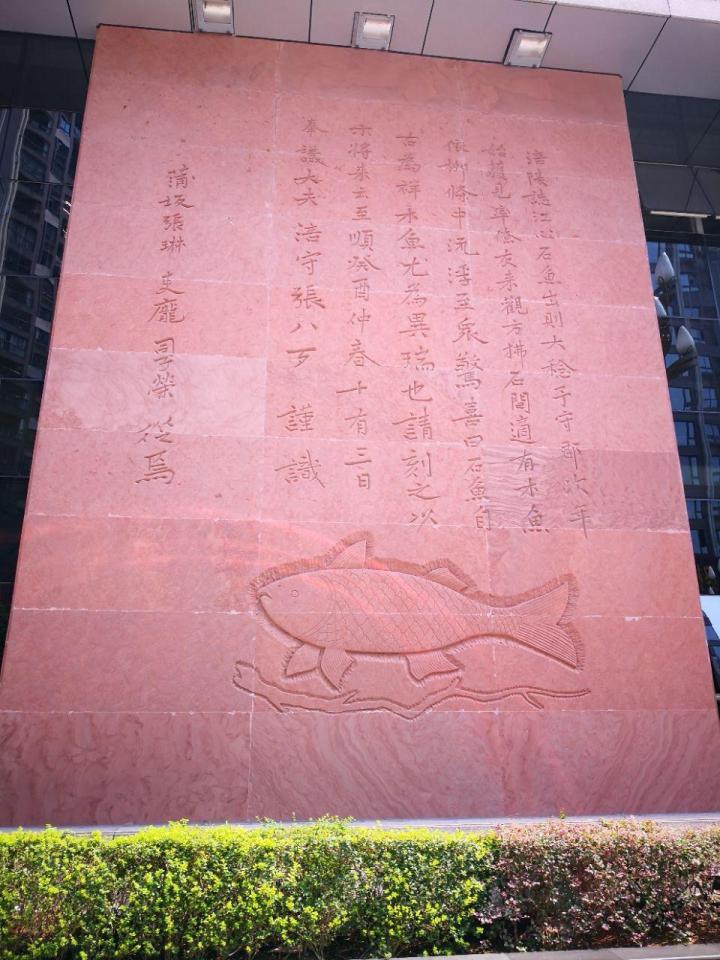 涪陵誌江心石魚出則大稔予守郡次年
始獲見率僚友来觀方拂石間適有木魚
依柳條中流浮至衆驚喜曰石魚自
古為祥木魚尤為異瑞也請刻之以
示將来云至順癸酉仲春十有三日
奉議大夫涪守張八歹謹識
蒲坂張琳 吏龐 榮 從焉